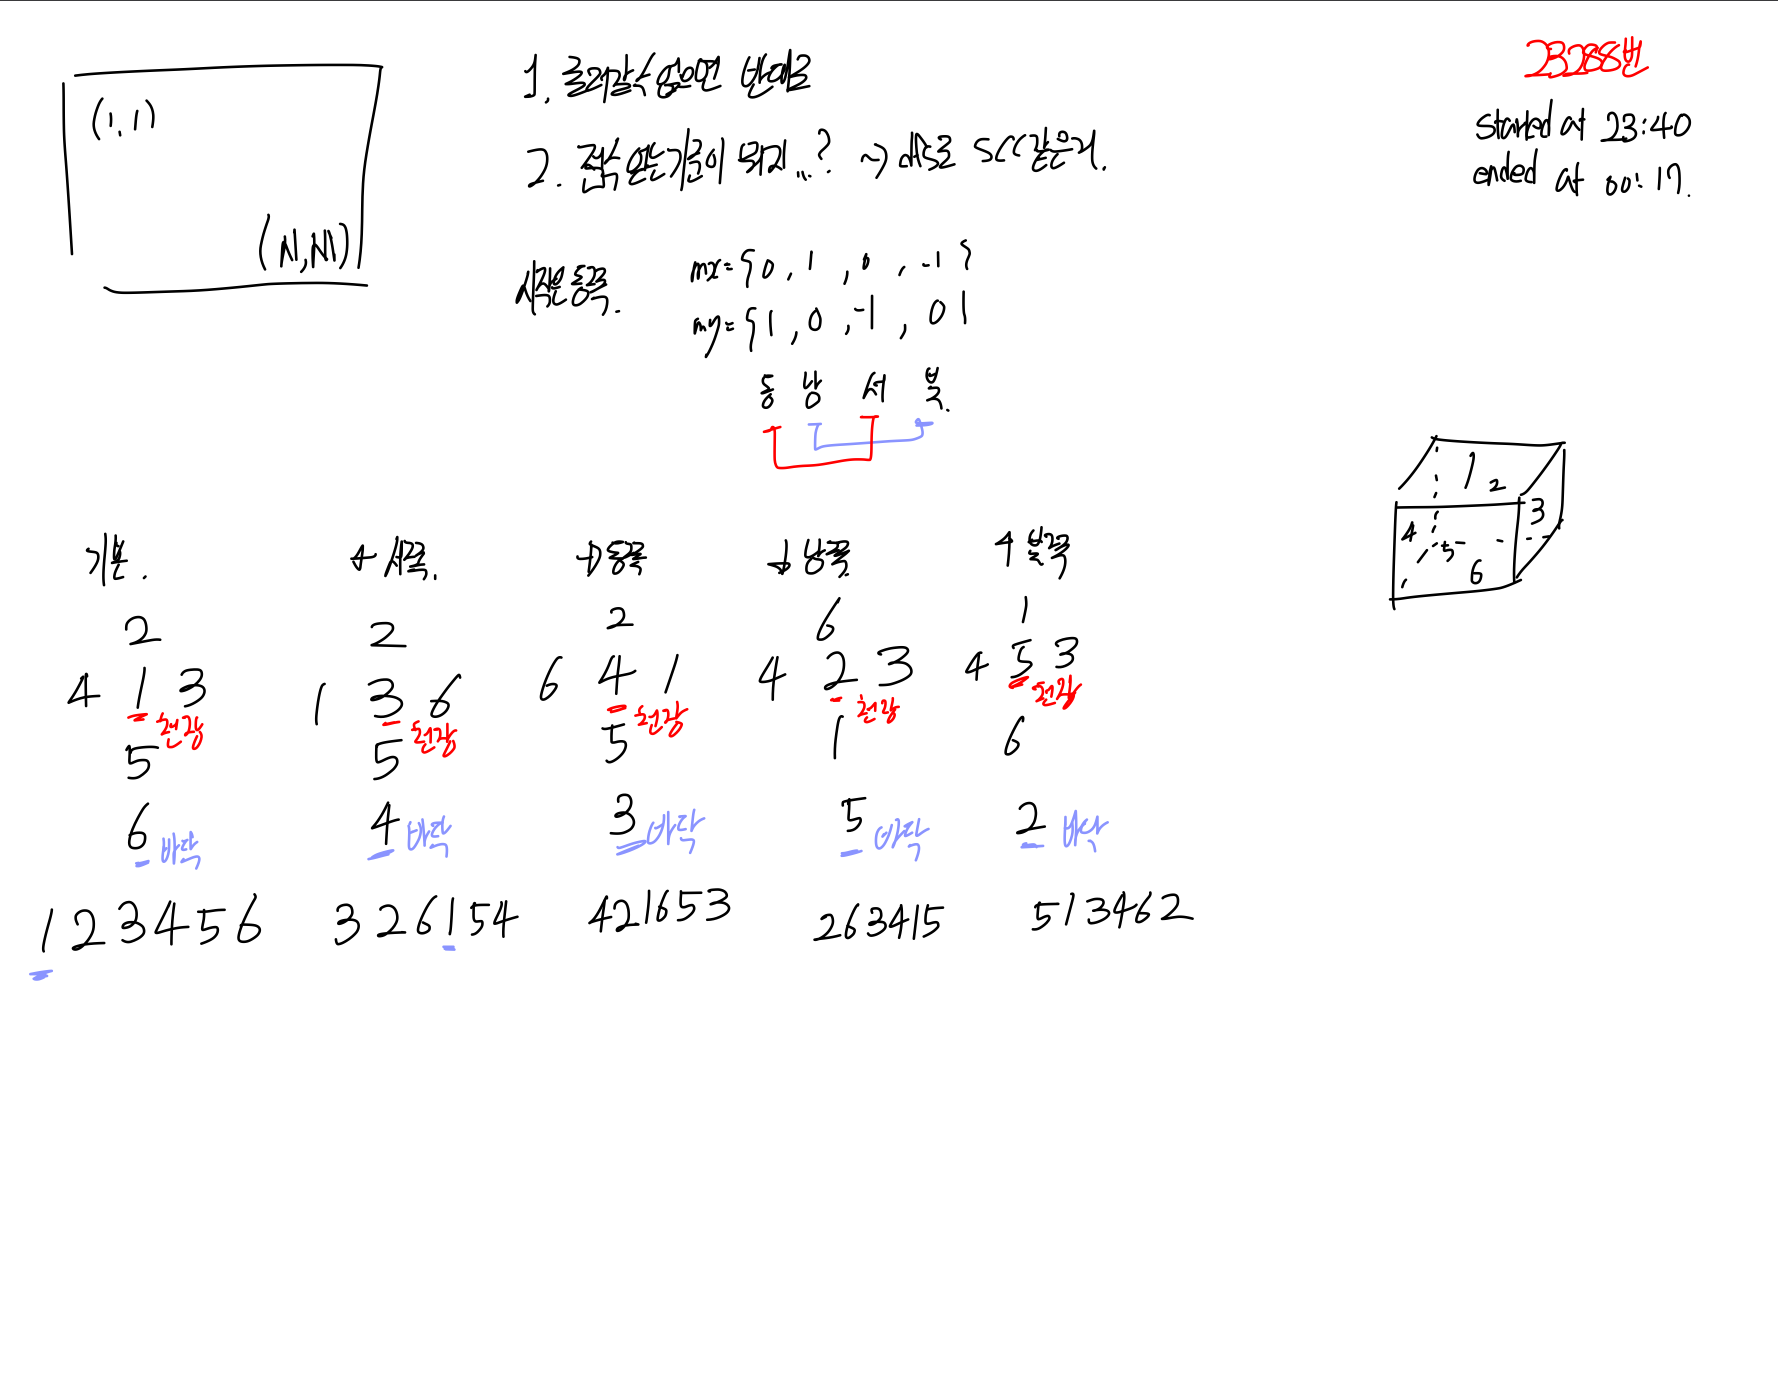 23288번
started at 23:40
ended at 00:17.
(1,1)
(N,M)
1. 굴러갈 수 없으면 반대로
2. 점수 얻는 기준이 뭐지...? ~> dfs로 SCC같은거.
시작은 동쪽.
mx={0, 1, 0, -1}
my={1, 0, -1, 0}
동 남 서 북.
1 2
4 3
5
6
기본. ← 서쪽. → 동쪽 ↓ 남쪽 ↑ 북쪽
2 2 2 6 1
4 1 3 1 3 6 6 4 1 4 2 3 4 5 3
천장 천장 천장 천장 천장
5 5 5 1 6
6 바닥 4 바닥 3 바닥 5 바닥 2 바닥
1 2 3 4 5 6 3 2 6 1 5 4 421653 263415 513462